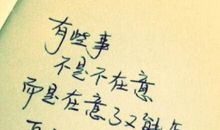 有些事
不是不在意
而是在意了又能